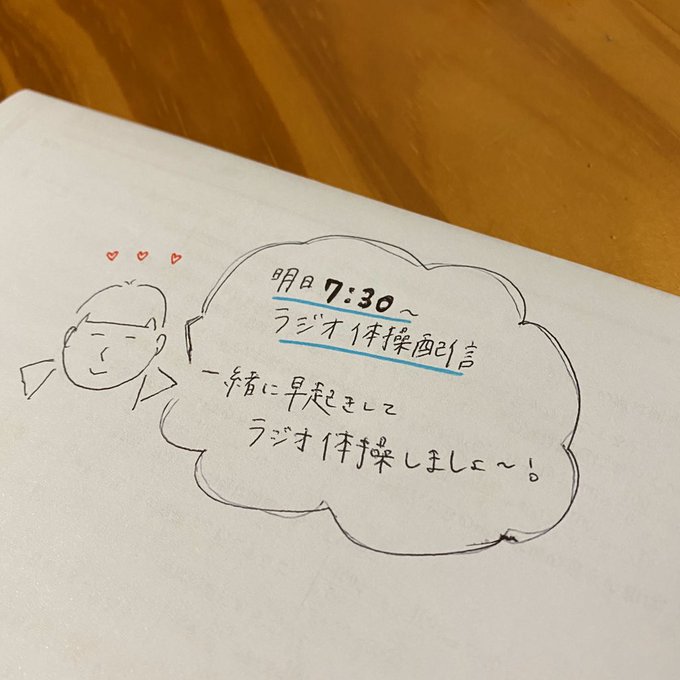 明日 7:30〜
ラジオ体操配信
一緒に早起きして
ラジオ体操しましょ〜!